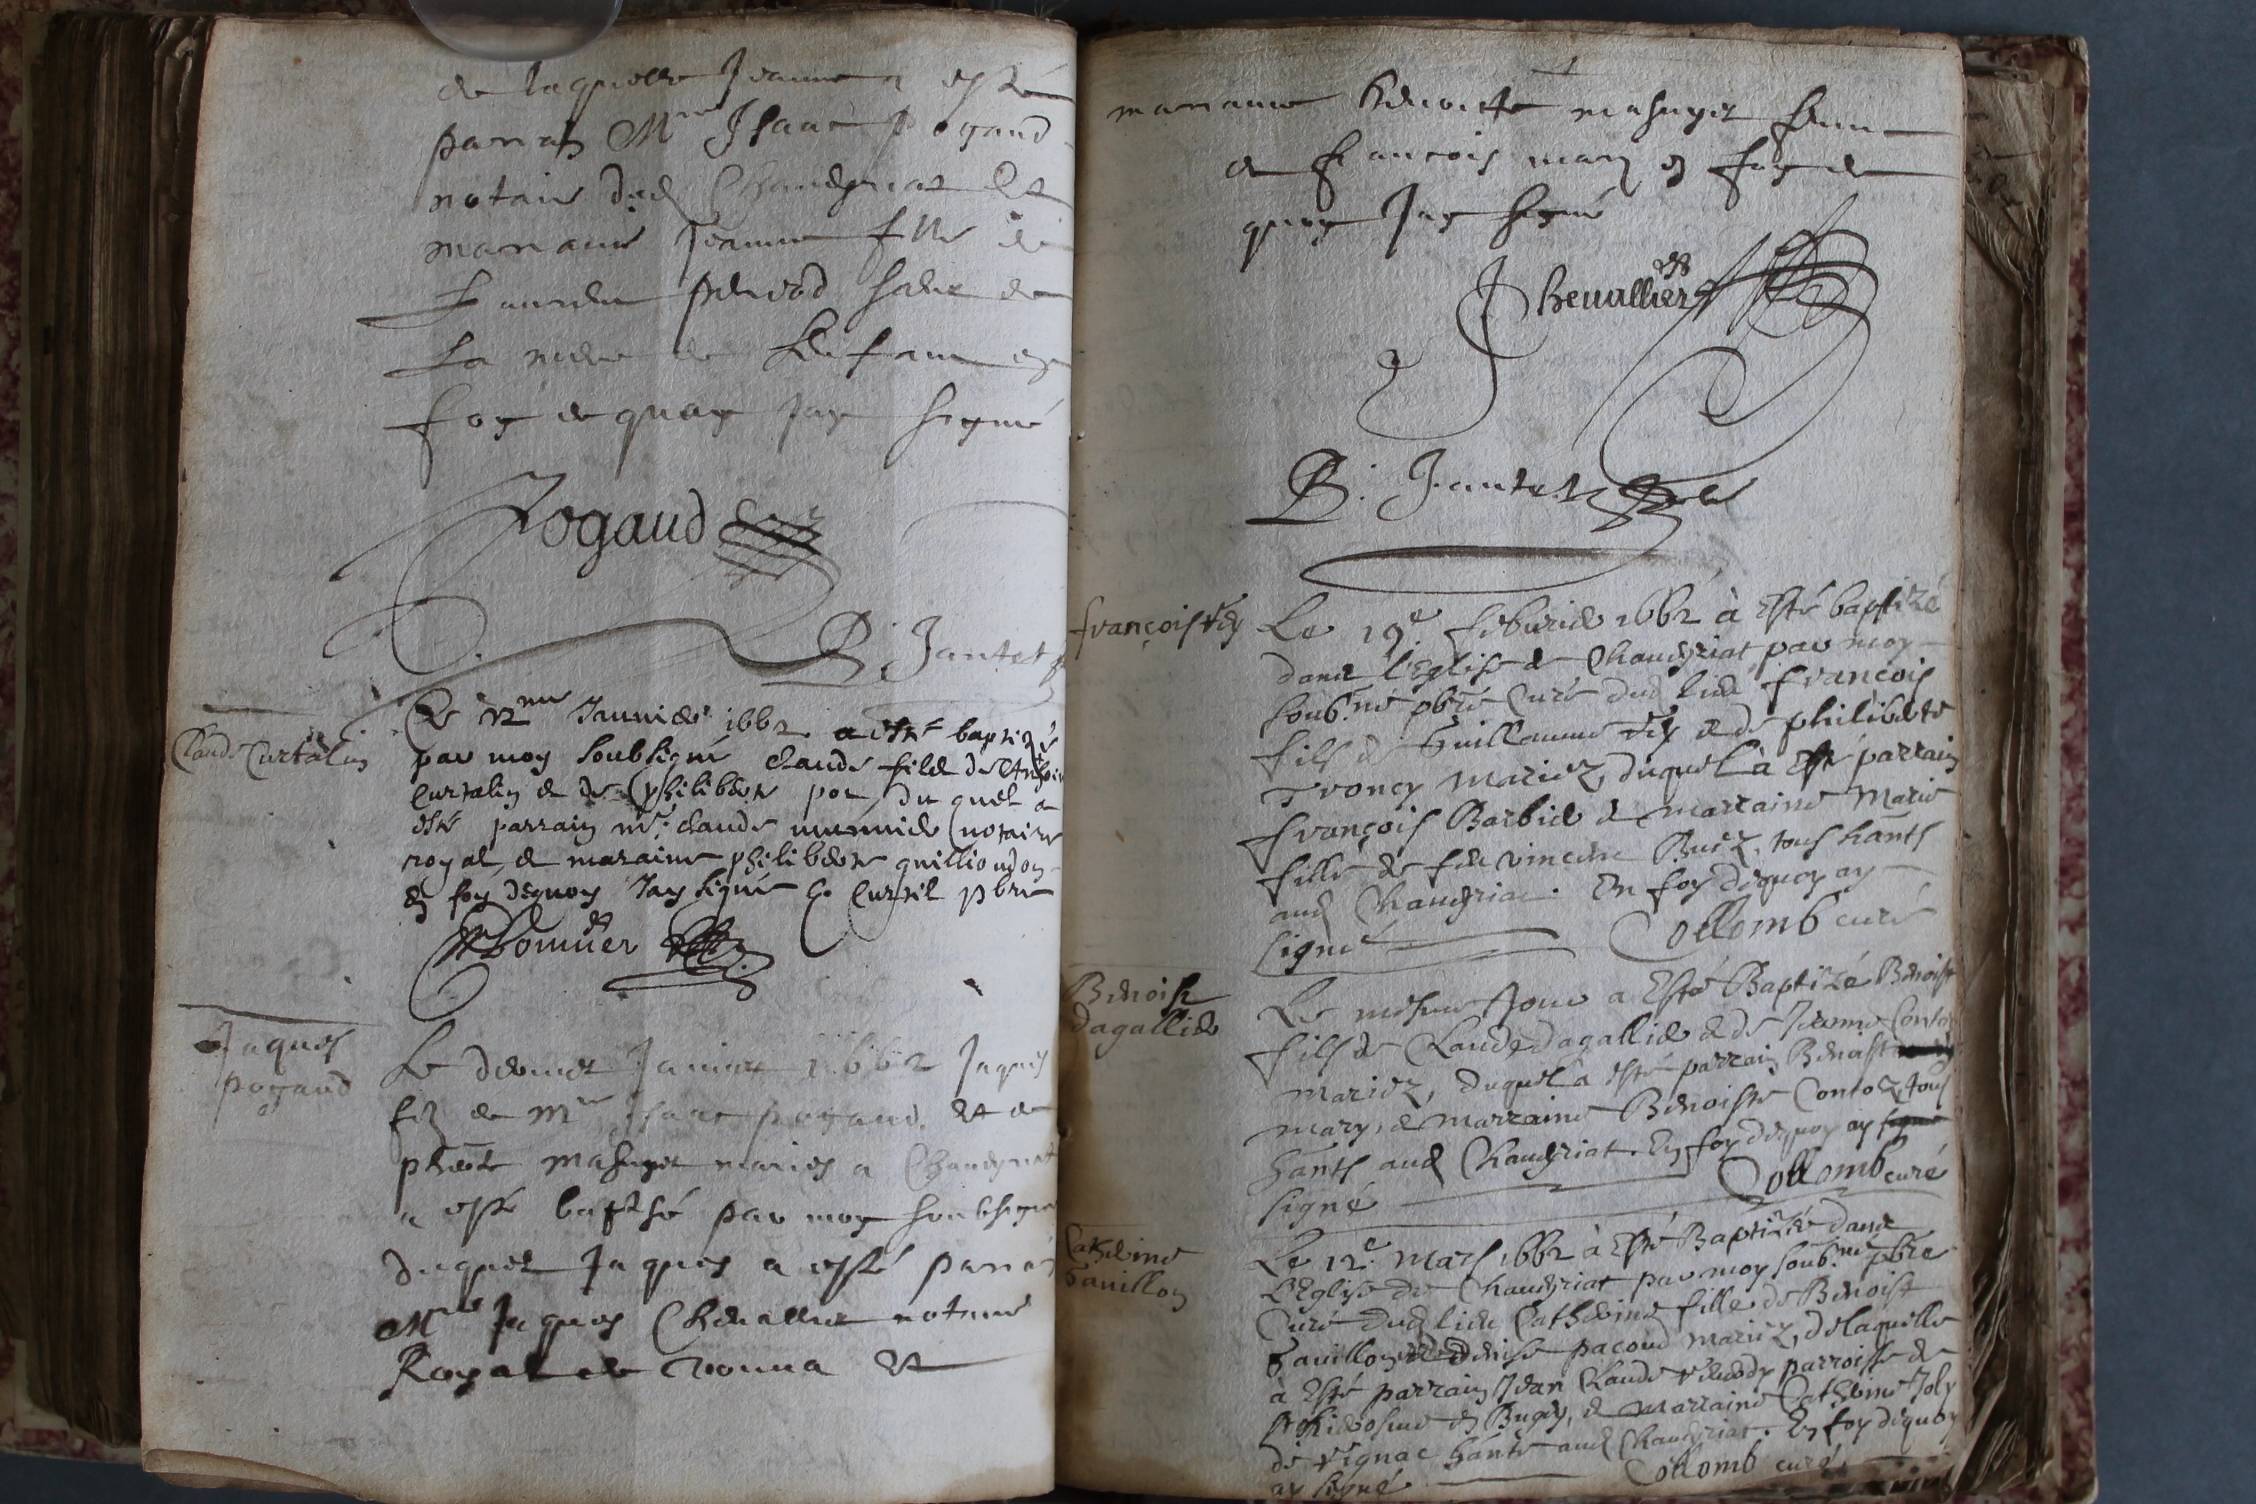 de laquelle Jeanne a esté
parrain Mre Isaac pogaud
notaire dud Chaveyriat Et
maraine Jeanne fille de
feu
La mere de Lenfant en
foy de quoy Jay signé
Pogaud
B. Jantet
Claude Curtalin
Le 12me Januier 1662 a esté baptizé
par moy soubsigné claude filz de Anthoine
Curtalin et de philiberte pot, du quel a
esté parrain mre claude notaire
royal, et maraine philiberte
En foy dequoy Jay signé C. Curtil pbre
Jaques
pogaud
Le dernier Januier 1662 Jaques
filz de Mre Isaac pogaud Et de
phberte masuyer maries a Chaveyriat
a esté baptisé par moy soubsigné
duquel Jaques a esté parain
Mre Jaques Chevallier notaire
Royal de vonna Et
maraine Benoitte masuyer femme
de francois mary en foy de
quoy Jay signé
J Chevallier
B. Jantet
françois Vey
Le 19e. feburier 1662 à Esté baptizé
dans l'Eglise de Chaveyriat par moy
soubné pbre Curé dud lieu françois
fils de Guillaume Vey et de philiberte
Troncy mariez, duquel à Esté parrain
françois Barbier et marraine Marie
fille de feu vincent Buez, tous hants
aud Chaveyriat. En foy dequoy ay
signé Collomb curé
Benoist
dagallier
Le mesme Jour a Esté Baptizé Benoist
fils de Claude dagallier et de Jeanne Contoz
mariez, duquel a esté parrain Benoist
mary, et marraine Benoiste Contoz, tous
hants aud Chaveyriat. En foy dequoy ay signé
signé Collomb curé
Catherine
Gauillon
Le 12e. Mars 1662 à Esté Baptizée dans
l'Eglise de Chaveyriat par moy soubné pbre
Curé dud lieu Catherine fille de Benoist
Gauillon et Denise pacoud mariez, de laquelle
à Esté parrain Jean Claude parroisse de
St hierosme en Bugey, et marraine Catherine Joly
de Vignac hante aud Chaveyriat. En foy dequoy
ay signé Collomb curé